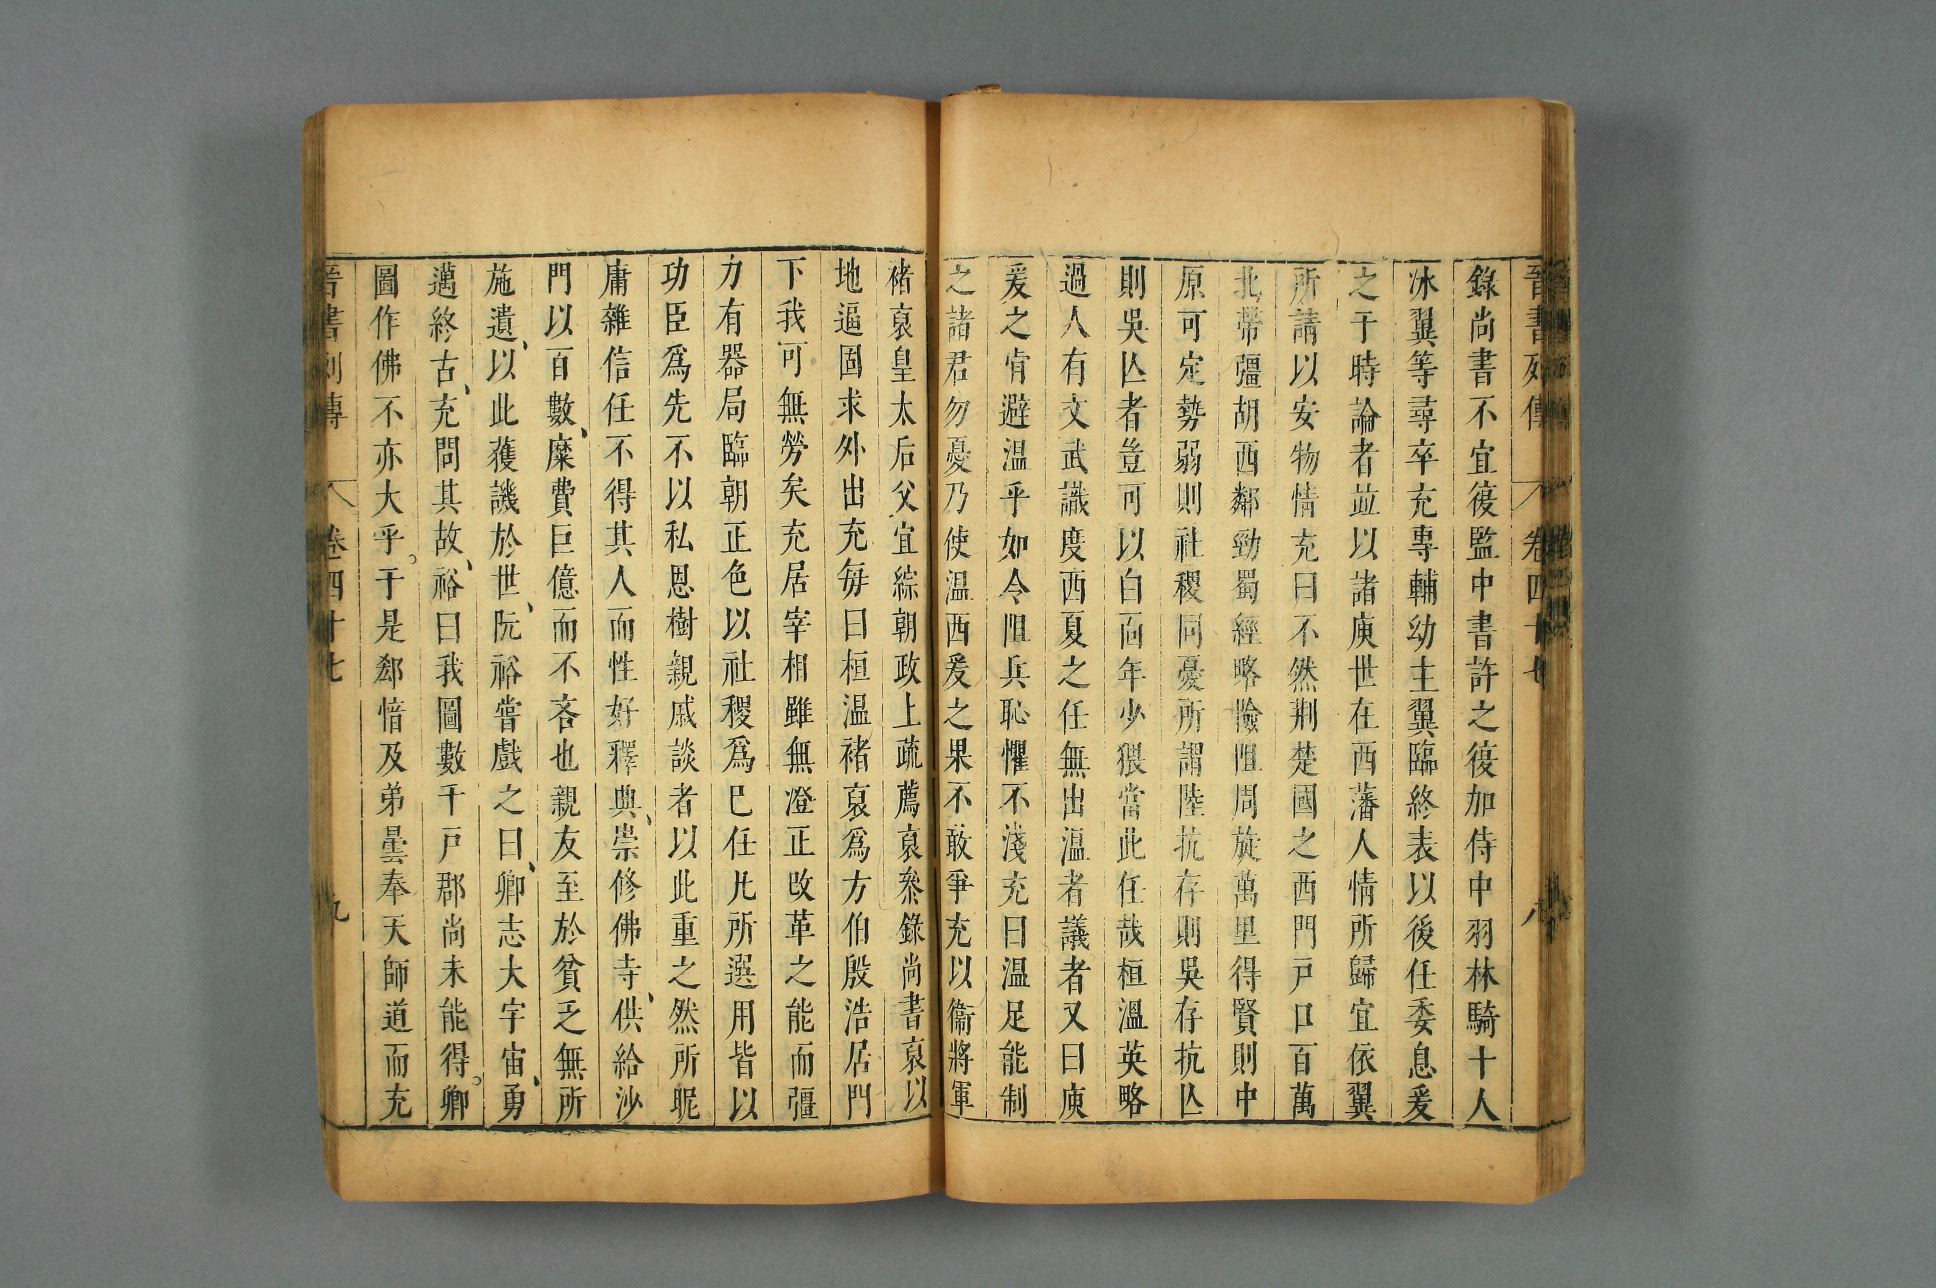 晉書列傳 卷四十七 八
錄尚書不宜復監中書許之復加侍中羽林騎十人
冰翼等尋卒充專輔幼主翼臨終表以後任委息爰
之于時論者並以諸庾世在西藩人情所歸宜依翼
所請以安物情充曰不然荆楚國之西門戸口百萬
北帶彊胡西鄰勁蜀經略險阻周旋萬里得賢則中
原可定勢弱則社稷同憂所謂陸抗存則吳存抗亾
則吳亾者豈可以白面年少猥當此任哉桓溫英略
過人有文武識度西夏之任無出溫者議者又曰庾
爰之肯避溫乎如令阻兵恥懼不淺充曰溫足能制
之諸君勿憂乃使溫西爰之果不敢爭充以衞將軍
褚裒皇太后父宜綜朝政上疏薦裒叅錄尚書裒以
地逼固求外出充每曰桓溫褚裒爲方伯殷浩居門
下我可無勞矣充居宰相雖無澄正改革之能而彊
力有器局臨朝正色以社稷爲巳任凡所選用皆以
功臣爲先不以私恩樹親戚談者以此重之然所昵
庸雜信任不得其人而性好釋典、崇修佛寺、供給沙
門以百數、糜費巨億而不吝也親友至於貧乏無所
施遺、以此獲譏於世、阮裕嘗戲之曰、卿志大宇宙、勇
邁終古、充問其故、裕曰我圖數千戸郡尚未能得。卿
圖作佛不亦大乎。于是郄愔及弟曇奉天師道而充
晉書列傳 卷四十七 九